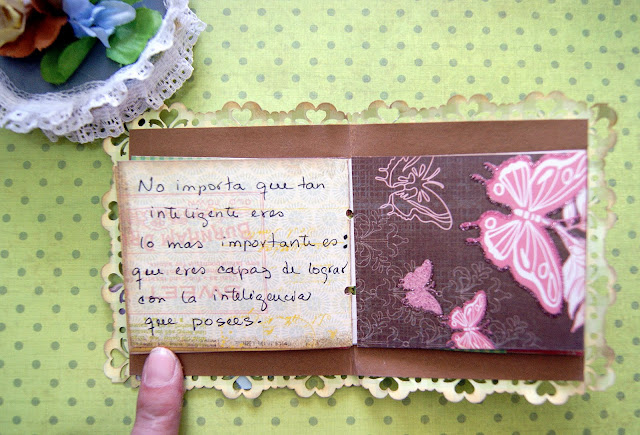 No importa que tan
inteligente eres
lo mas importante es:
que eres capaz de lograr
con la inteligencia
que posees.